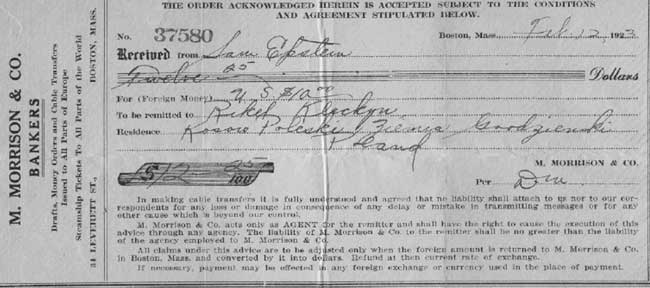 M. MORRISON & CO.
BANKERS
Drafts, Money Orders and Cable Transfers
Issued to All Parts of Europe
Steamship Tickets To All Parts of the World
31 LEVERETT ST., BOSTON, MASS.
THE ORDER ACKNOWLEDGED HEREIN IS ACCEPTED SUBJECT TO THE CONDITIONS
AND AGREEMENT STIPULATED BELOW.
No. 37580 Boston, Mass. Feb. 12, 1923
Received from Sam Epstein
Twelve 25 Dollars
For (Foreign Money) U S $10.00
To be remitted to
Residence Kosow Poleski Grodzienski
Poland
$12 25/100
M. MORRISON & CO.
Per
In making cable transfers it is fully understood and agreed that no liability shall attach to us nor to our cor-
respondents for any loss or damage in consequence of any delay or mistake in transmitting messages or for any
other cause which is beyond our control.
M. Morrison & Co. acts only as AGENT for the remitter and shall have the right to cause the execution of this
advice through any agency. The liability of M. Morrison & Co. to the remitter shall be no greater than the liability
of the agency employed to M. Morrison & Co.
All claims under this advice are to be adjusted only when the foreign amount is returned to M. Morrison & Co.
in Boston, Mass. and converted by it into dollars. Refund at then current rate of exchange.
If necessary, payment may be effected in any foreign exchange or currency used in the place of payment.